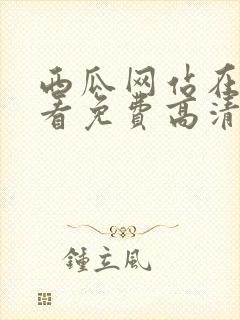 西瓜网站在
看免费高清
鍾立风